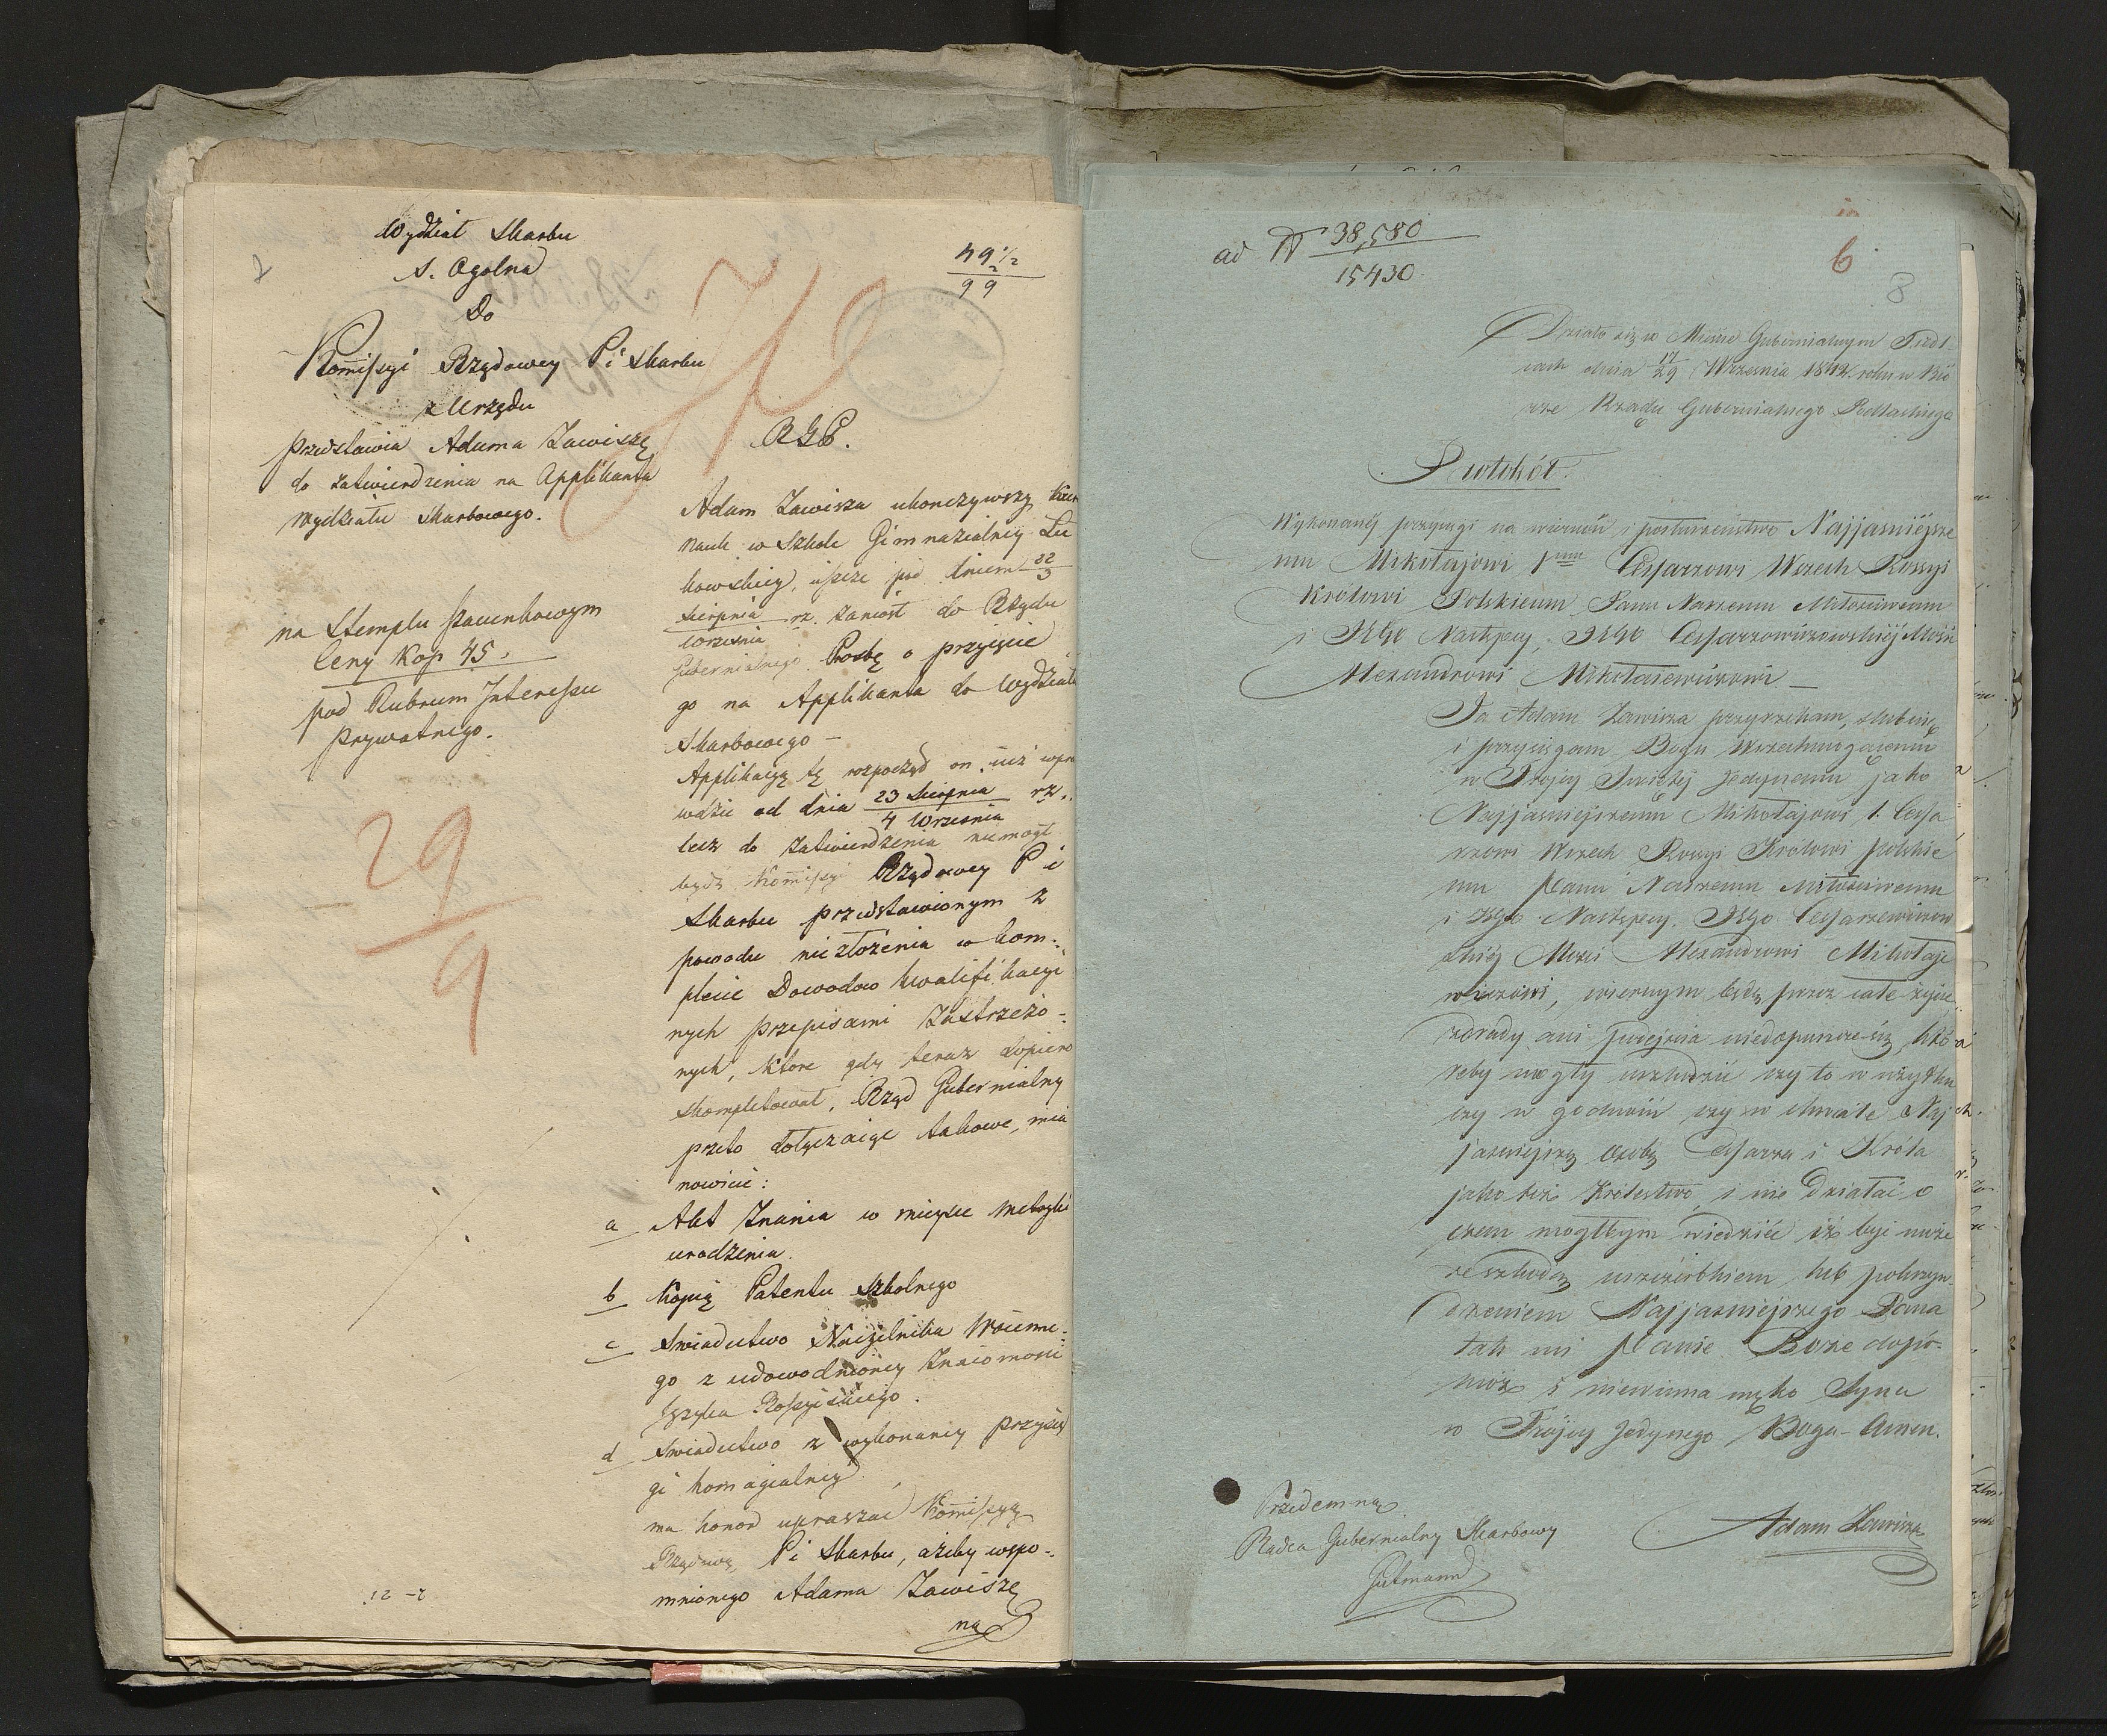 Wydział Skarbu
S. Ogolna
Do
Kommissyi Rządowey P i Skarbu
z Urzędu
przedstawia Adama Zawiszę
do zatwierdzenia na Applikanta
Wydziału Skarbowego.
na Stemplu szacunkowym
Ceny Kop 45.
pod Rubrum Interessu
Prywatnego.
29
9
49 1/2
2
99
RGP.
Adam Zawisza ukonczywszy Kurs
Nauk w Szkole Gimnazialney Łu
kowskiey, ieszcze pod dniem 22/3
Sierpnia
Września rz. zaniosł do Rządu
Gubernialnego Prosbę o przyięcie
go na Applikanta do Wydziału
Skarbowego –
Applikacyą tę rozpoczął on iuż wpra
wdzie od dnia 23 Sierpnia rz.
4 Września
lecz do zatwierdzenia niemogł
bydź Kommissyi Rządowey P i
Skarbu przedstawionym z
powodu niezłożenia w kom:
plecie Dowodow kwalifikacyi
nych przepisami Zastrzeżo-
nych, ktore gdy teraz dopiero
skompletował, Rząd Gubernialny
przeto dołączaiąc takowe, mia
nowicie:
a Akt Znania w mieysce metryki
urodzenia.
b Kopią Patentu Szkolnego
c Swiadectwo Naczelnika Woienne:
go z udowodnioney Znaiomosci
Języka Rossyiskiego.
d Swiadectwo z wykonaney przysię
gi homagialney
ma honor upraszać Kommissyą
Rządową P i Skarbu, ażeby wspo-
mnionego Adama Zawiszę
na
ad N 38,580
15430.
6
8
Działo się w Mieście Gubernialnym Siedl
cach dnia 17/29 Września 1842 roku w Bió
rze Rządu Gubernialnego Podlaskiego
Protokół.
Wykonanéj przysięgi na wierność i posłuszeństwo Najjaśniejsze
mu Mikołajowi Imu Cesarzowi Wszech Rossyi
Królowi Polskiemu Panu Naszemu Miłościwemu
i Jego Następcy, Jego Cesarzewiczowskiéj Mości
Alexandrowi Mikołaiewiczowi –
Ja Adam Zawisza przyrzekam, slubuię
i przysięgam Bogu Wszechmogącemu
w Trójcy Swiętéj Jedynemu jako
Najjaśniejszemu Mikołajowi 1. Cesa
rzowi Wszech Rossyi Królowi polskie
mu Panu Naszemu Miłościwemu
i Jego Następcy. Jego Cesarzewiczow
skiéj Mości Alexandrowi Mikołaje
wiczowi, wiernym będę przez całe życie
zdrady ani podejscia niedopuszczę się, któ
reby mogły uszkodzić czy to w użytku
czy w godności czy w chwale Naj
jaśniejszą Osobę Cesarza i Króla
jako też Królestwo, i nie działać o
czem mógłbym wiedzieć iż być może
ze szkodą uszczérbkiem lub pokrzyw-
dzeniem Najjaśniejszego Pana
tak mi Panie Boże dopo-
móż i niewinna męko Syna
w Trójcy Jedynego Boga – Amen.
Przedemną
Radca Gubernialny Skarbowy
Gutmann
Adam Zawisza